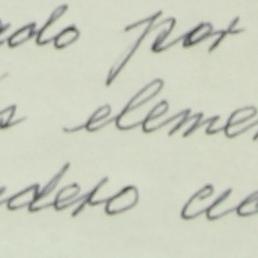 ado por
s elemen
dero cua